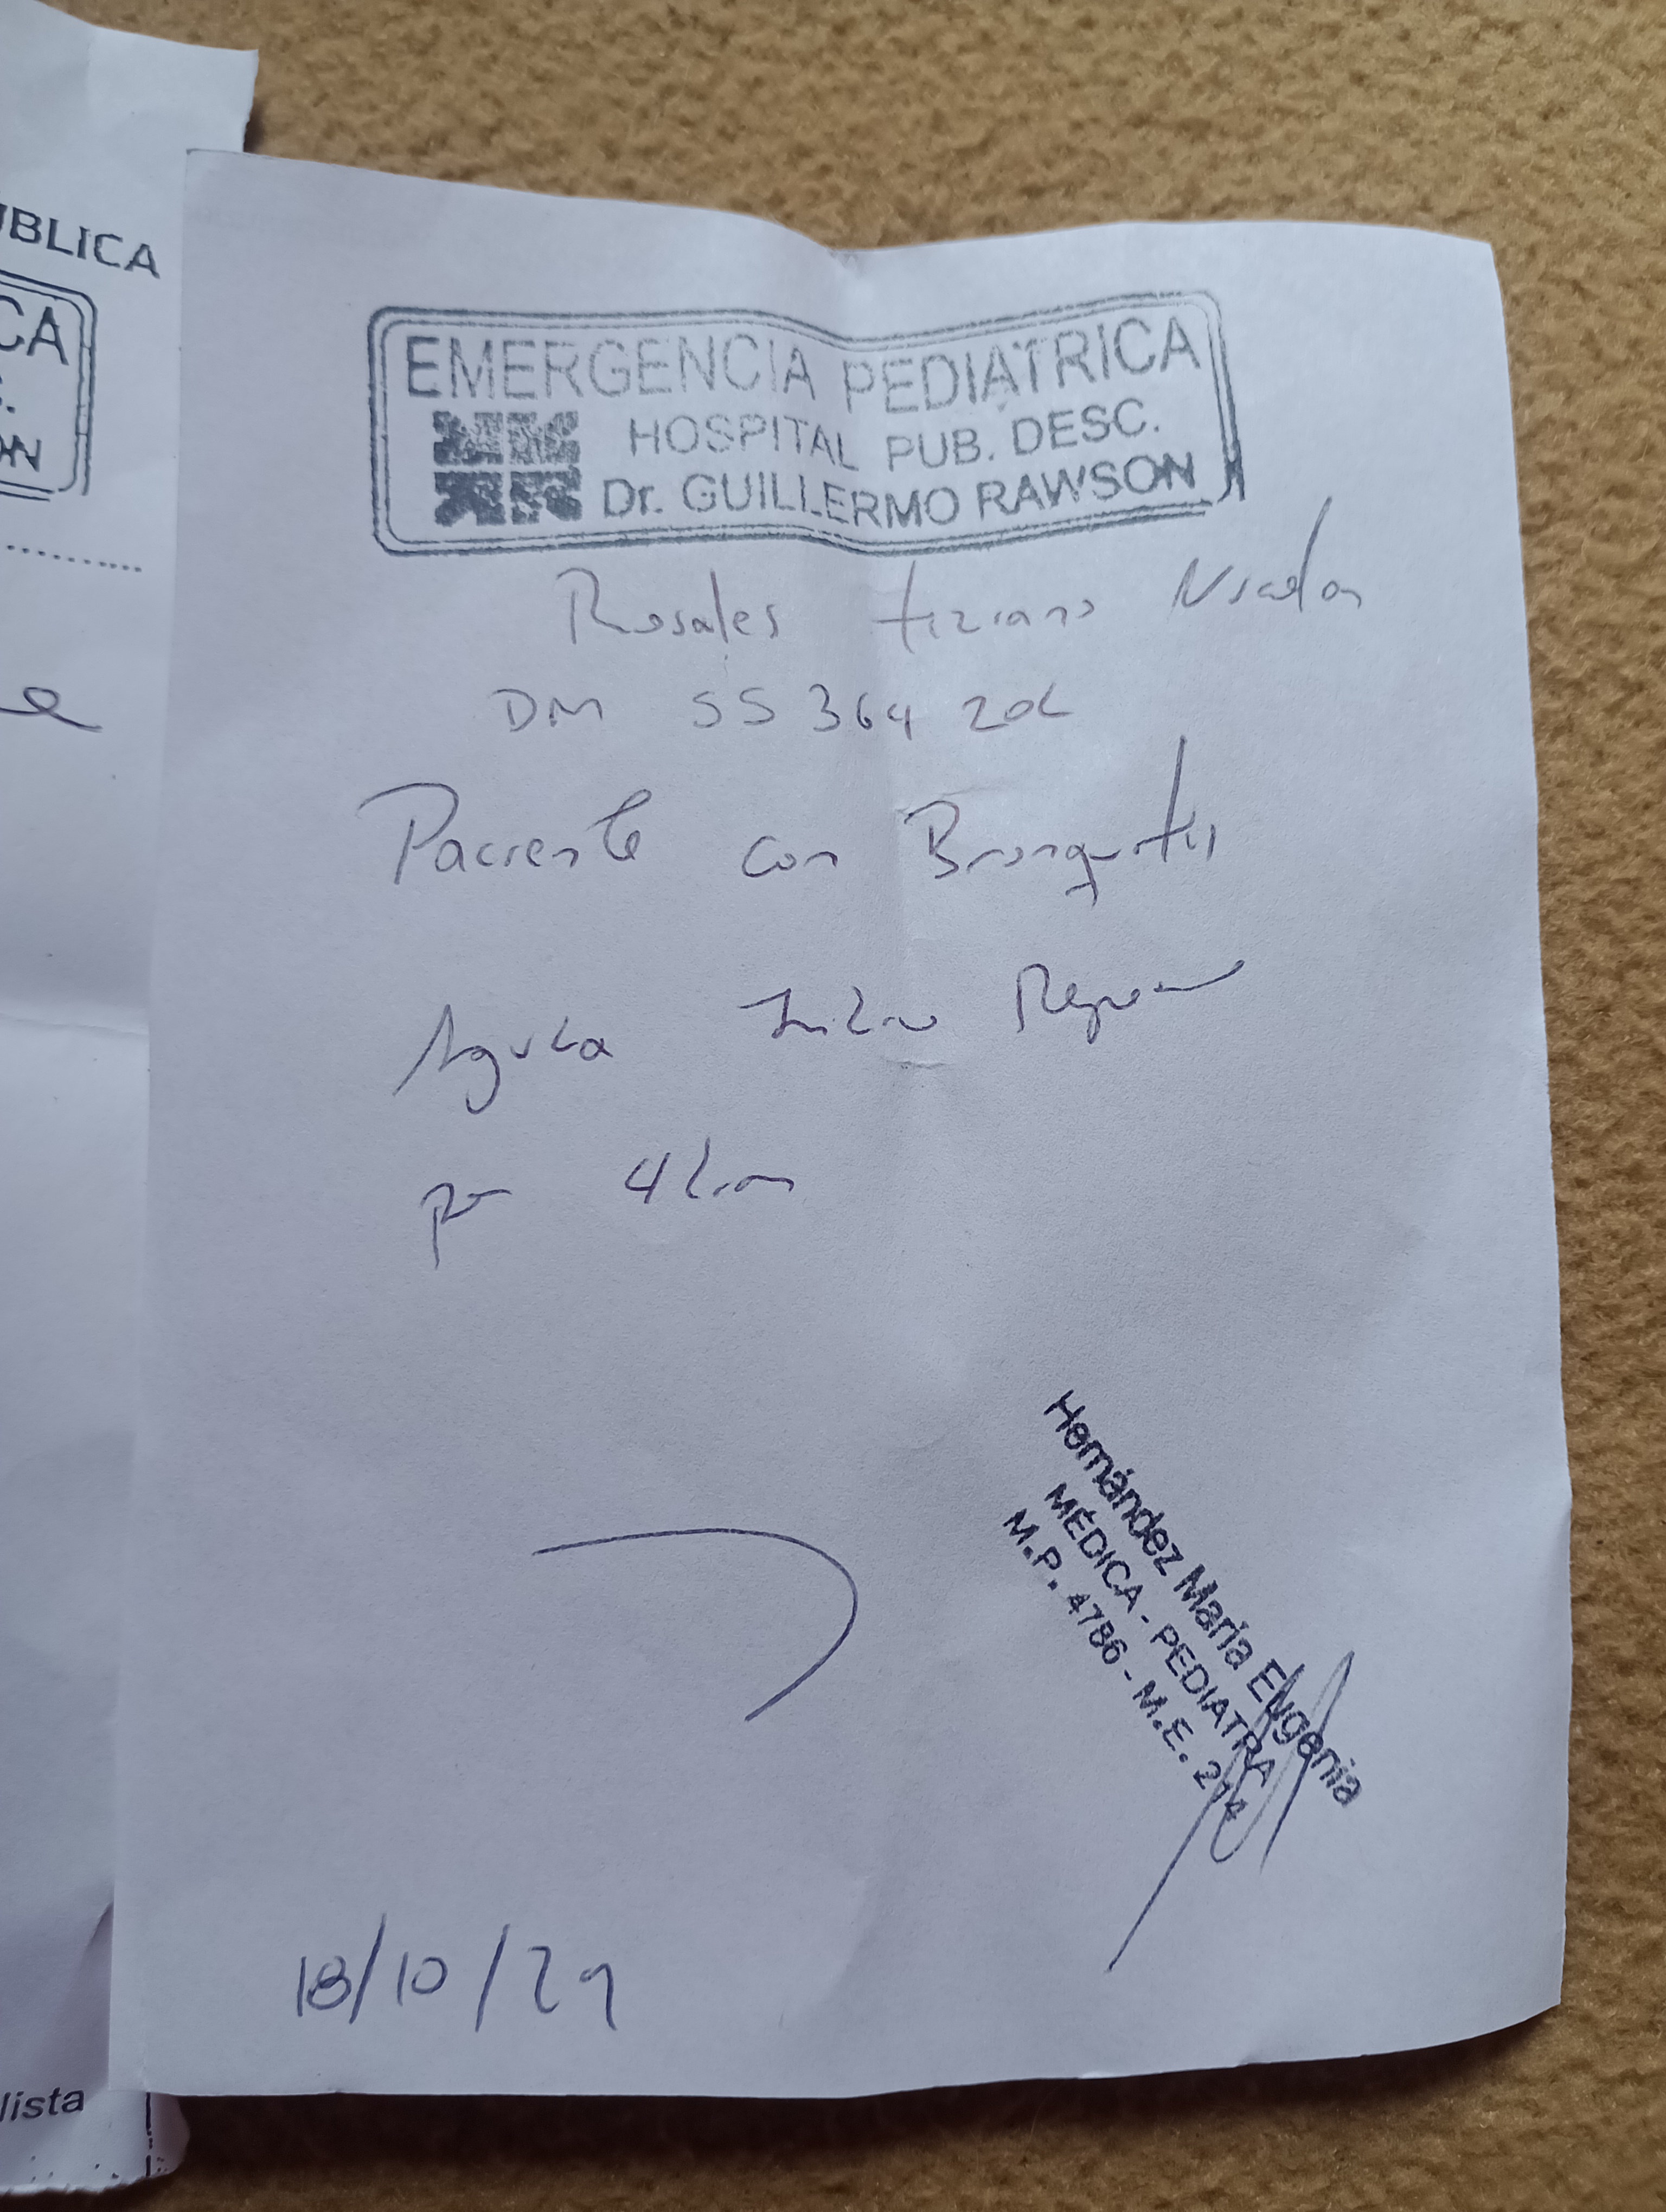 ÚBLICA
CA
lista
EMERGENCIA PEDIATRICA
HOSPITAL PUB. DESC.
Dr. GUILLERMO RAWSON
Rosales tiziano Nicolas
55 364 20
Paciente con Bronquitis
Aguda
por 4
Hernández María Eugenia
MÉDICA - PEDIATRA
M.P. 4786 - M.E.
18/10/24